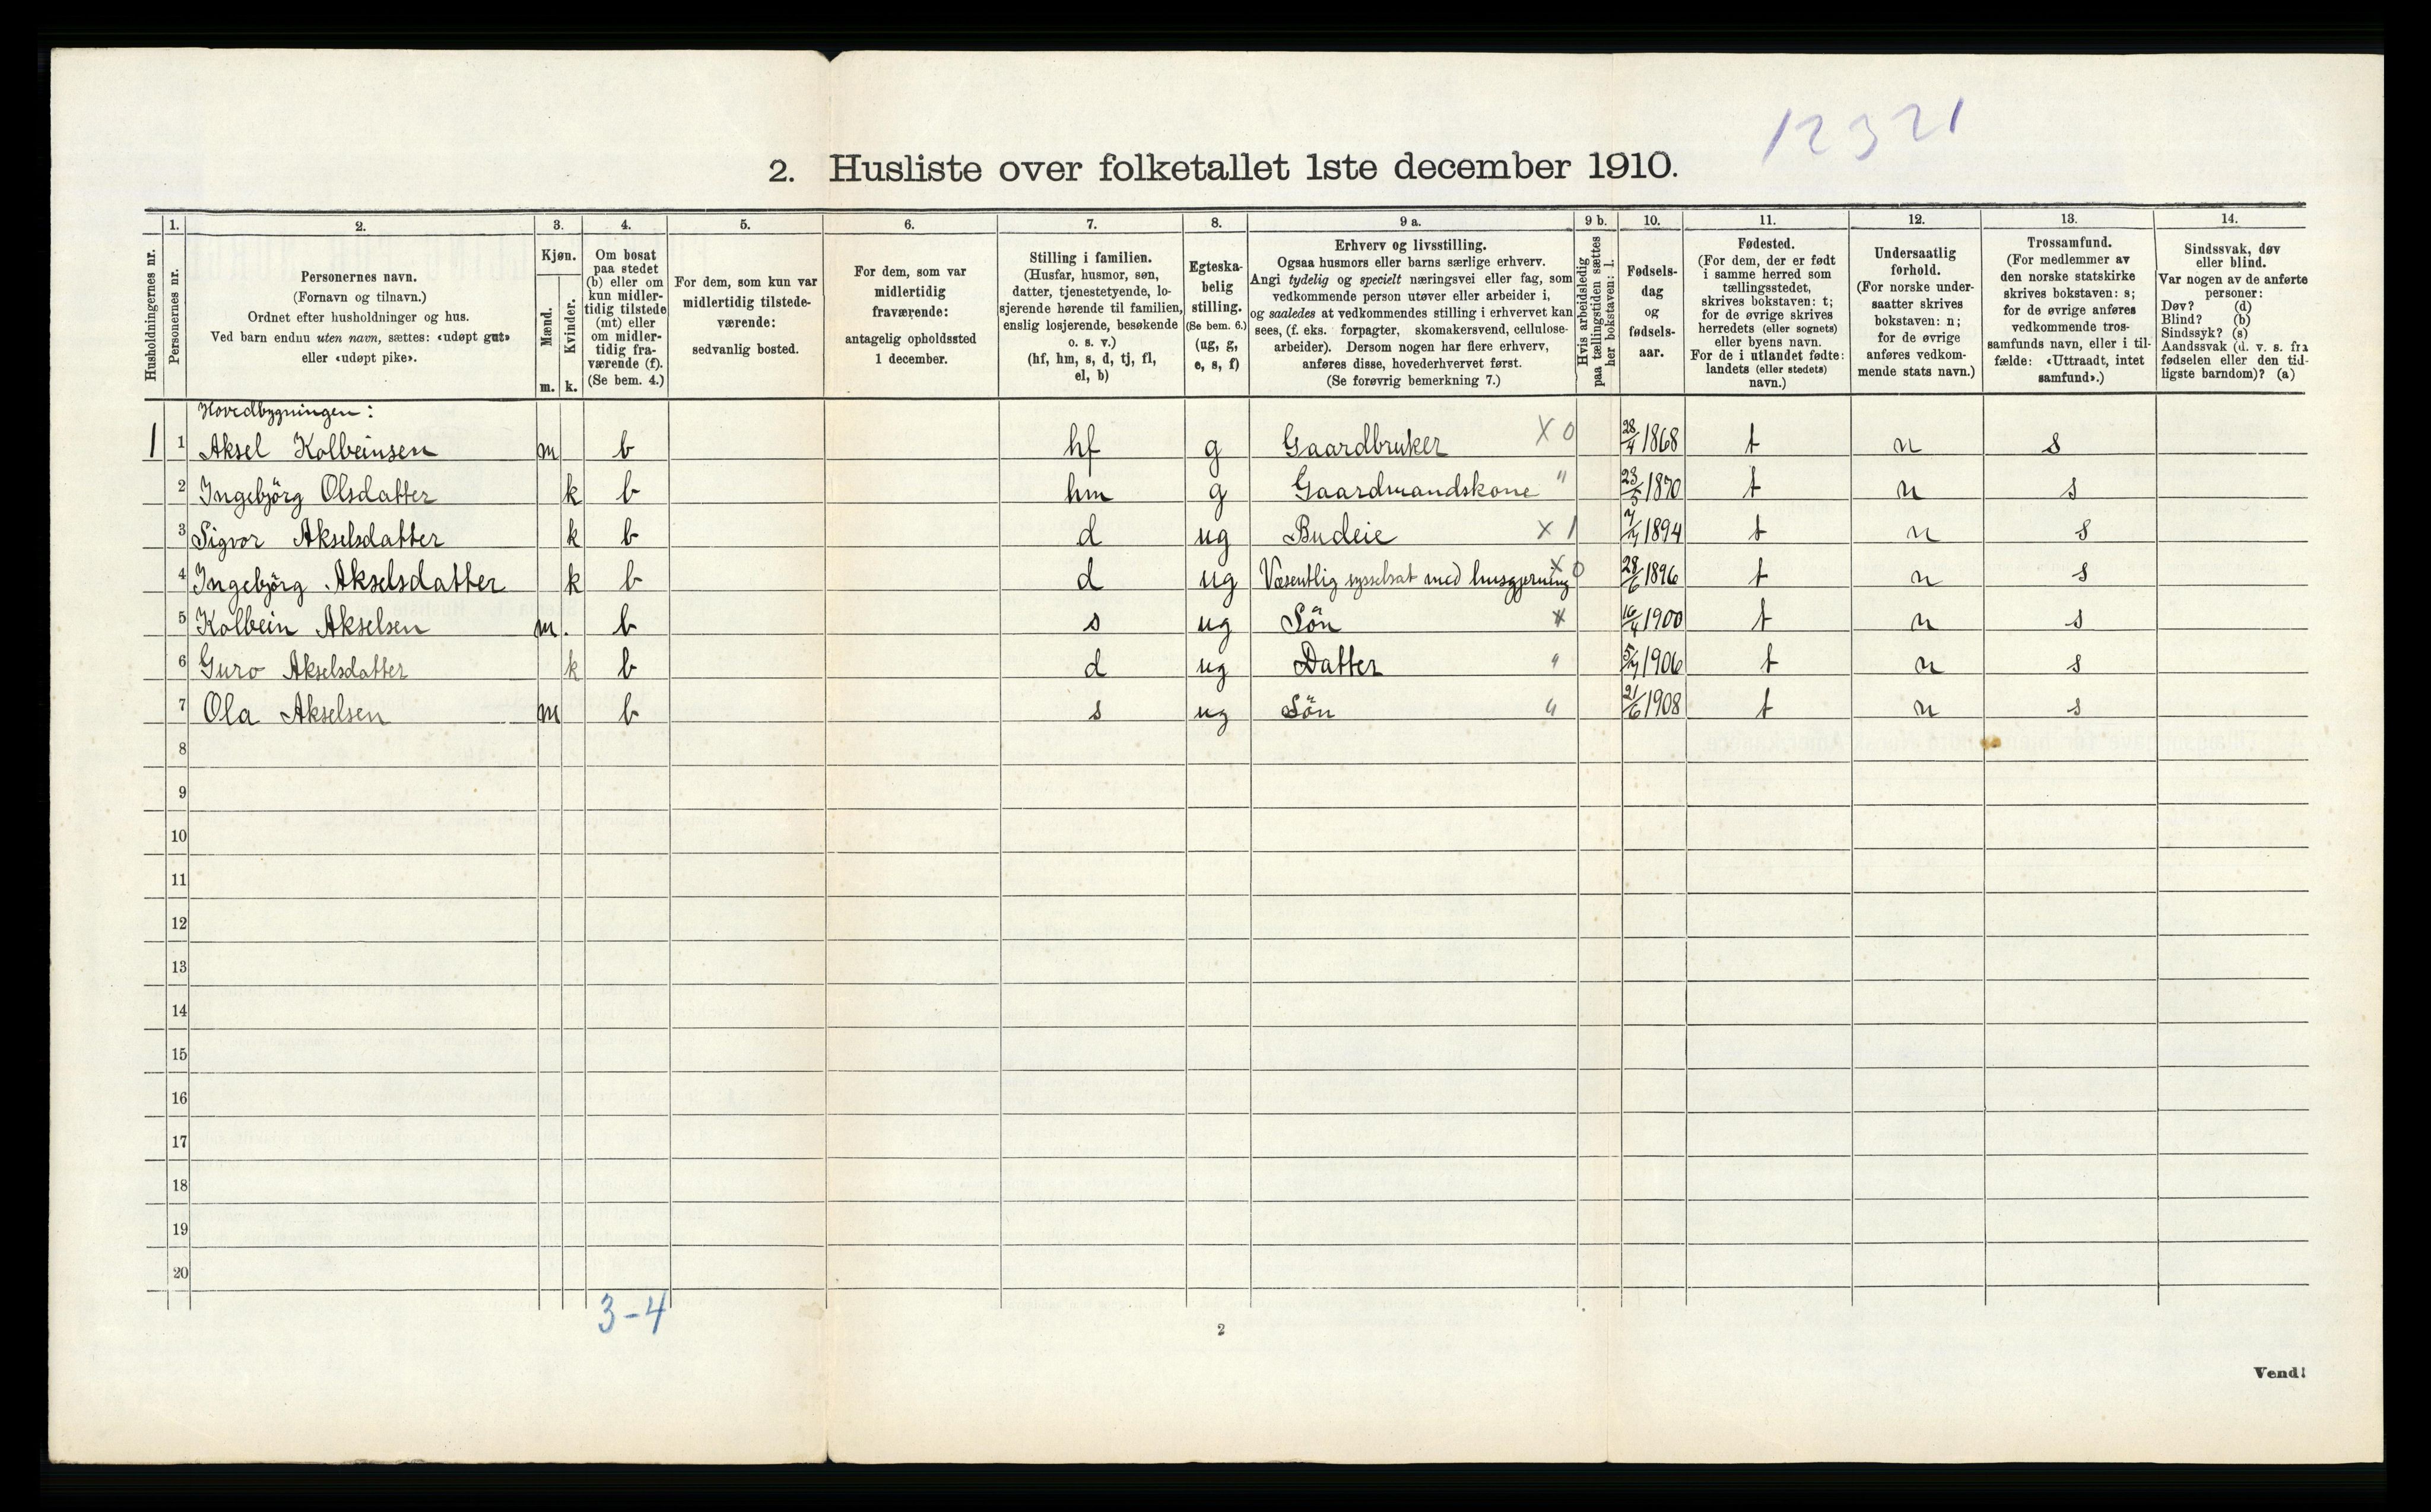 12321
2. Husliste over folketallet 1ste december 1910.
Husholdningernes nr.
1.
Personernes nr.
2.
Personernes navn.
(Fornavn og tilnavn.)
Ordnet efter husholdninger og hus.
Ved barn endnu uten navn, sættes: «udøpt gut»
eller «udøpt pike».
3.
Kjøn.
Mænd.
m.
Kvinder.
k.
4.
Om bosat
paa stedet
(b) eller om
kun midler-
tidig tilstede
(mt) eller
om midler-
tidig fra-
værende (f).
(Se bem. 4.)
5.
For dem, som kun var
midlertidig tilstede-
værende:
sedvanlig bosted.
6.
For dem, som var
midlertidig
fraværende:
antagelig opholdssted
1 december.
7.
Stilling i familien.
(Husfar, husmor, søn,
datter, tjenestetyende, lo-
sjerende hørende til familien,
enslig losjerende, besøkende
o. s. v.)
(hf, hm, s, d, tj, fl,
el, b)
8.
Egteska-
belig
stilling.
(Se bem. 6.)
(ug, g,
e, s, f)
9 a.
Erhverv og livsstilling.
Ogsaa husmors eller barns særlige erhverv.
Angi tydelig og specielt næringsvei eller fag, som
vedkommende person utøver eller arbeider i,
og saaledes at vedkommendes stilling i erhvervet kan
sees, (f. eks. forpagter, skomakersvend, cellulose-
arbeider). Dersom nogen har flere erhverv,
anføres disse, hovederhvervet først.
(Se forøvrig bemerkning 7.)
9 b.
Hvis arbeidsledig
paa tællingstiden sættes
her bokstaven: l.
10.
Fødsels-
dag
og
fødsels-
aar.
11.
Fødested.
(For dem, der er født
i samme herred som
tællingsstedet,
skrives bokstaven: t;
for de øvrige skrives
herredets (eller sognets)
eller byens navn.
For de i utlandet fødte:
landets (eller stedets)
navn.)
12.
Undersaatlig
forhold.
(For norske under-
saatter skrives
bokstaven: n;
for de øvrige
anføres vedkom-
mende stats navn.)
13.
Trossamfund.
(For medlemmer av
den norske statskirke
skrives bokstaven: s;
for de øvrige anføres
vedkommende tros-
samfunds navn, eller i til-
fælde: «Uttraadt, intet
samfund».)
14.
Sindssvak, døv
eller blind.
Var nogen av de anførte
personer:
Døv? (d)
Blind? (b)
Sindssyk? (s)
Aandssvak (d. v. s. fra
fødselen eller den tid-
ligste barndom)? (a)
Hovedbygningen:
1 1 Aksel Kolbeinsen m b hf g Gaardbruker X 0 28/4 1868 t n s
2 Ingebjörg Olsdatter k b hm g Gaardmandskone " 23/5 1870 t n s
3 Sigvor Akselsdatter k b d ug Budeie X 1 1894 t n s
4 Ingebjörg Akselsdatter k b d ug Væsentlig sysselsat med husgjerning X 0 28/6 1896 t n s
5 Kolbein Akselsen m. b s ug Sön 16/4 1900 t n s
6 Guro Akselsdatter k b d ug Datter " 1906 t n s
7 Ola Akselsen m b s ug Sön " 21/6 1908 t n s
8
9
10
11
12
13
14
15
16
17
18
19
20
3-4
2
Vend!